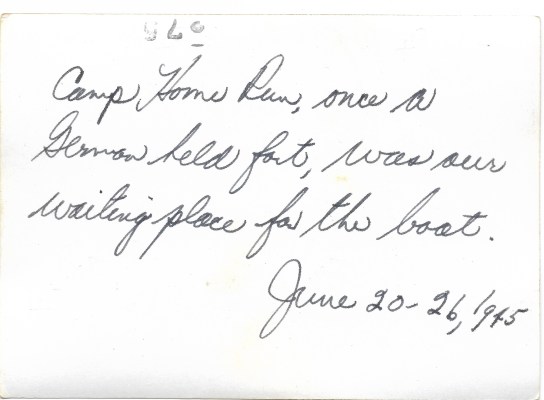 Camp Home Run, once a
German held fort, was our
waiting place for the boat.
June 20-26, 1945